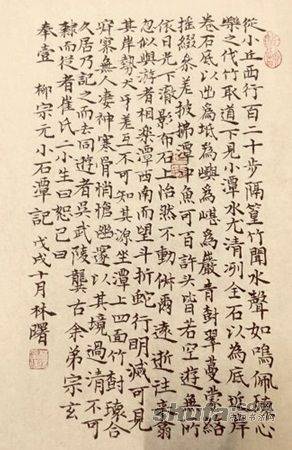 從小丘西行百二十步隔篁竹聞水聲如鳴佩環心
樂之伐竹取道下見小潭水尤清冽全石以為底近岸
卷石底以出為坻為嶼為嵁為巖青樹翠蔓蒙絡
搖綴參差披拂潭中魚可百許頭皆若空游無所
依日光下澈影布石上怡然不動俶爾遠逝往來翕
忽似與游者相樂潭西南而望斗折蛇行明滅可見
其岸勢犬牙差互不可知其源坐潭上四面竹樹環合
寂寥無人凄神寒骨悄愴幽邃以其境過清不可
久居乃記之而去同遊者吳武陵龔古余弟宗玄
隸而從者崔氏二小生曰恕己曰
奉壹 柳宗元小石潭記 戊戌十月林曙